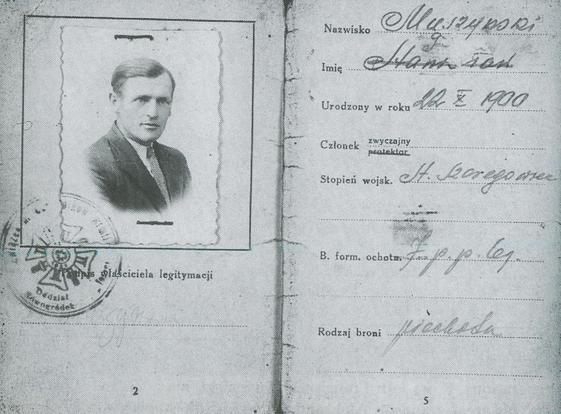 Podpis właściciela legitymacji
Oddział
2
Nazwisko Muszyński
Imię
Urodzony w roku 22 X 1900
Członek zwyczajny
protektor
Stopień wojsk. St. Szeregowiec
B. form. ochotn. p. p. Leg.
Rodzaj broni piechota
5